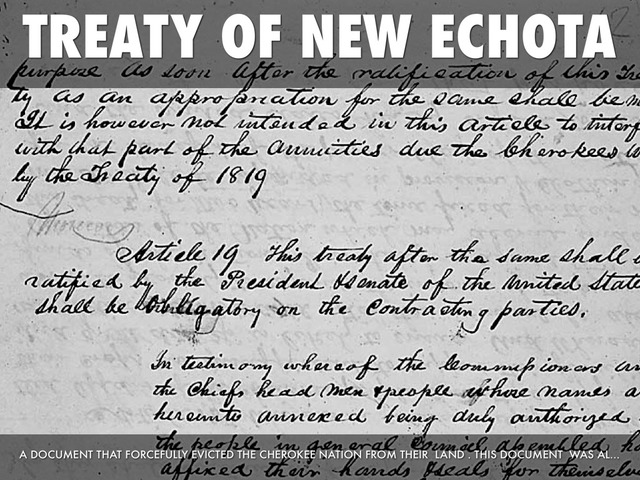 TREATY OF NEW ECHOTA
purpose as soon after the ratification of this Trea
ty as an appropriation for the same shall be m
It is however not intended in this article to interf
with that part of the annuities due the Cherokees w
by the Treaty of 1819
Article 19 This treaty after the same shall b
ratified by the President & Senate of the United State
shall be Obligatory on the contracting parties.
In testimony whereof the Commissioners an
the Chiefs head men & people whose names a
hereunto annexed being duly authorized
the people in general Council assembled ha
affixed their hands & seals for themselve
A DOCUMENT THAT FORCEFULLY EVICTED THE CHEROKEE NATION FROM THEIR LAND . THIS DOCUMENT WAS AL...